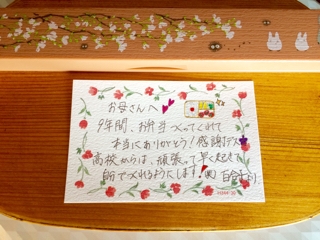 お母さんへ
9年間、お弁当つくってくれて
本当にありがとう！感謝
高校からは、頑張って早く起きて
師でつくれるようにします！
百合より